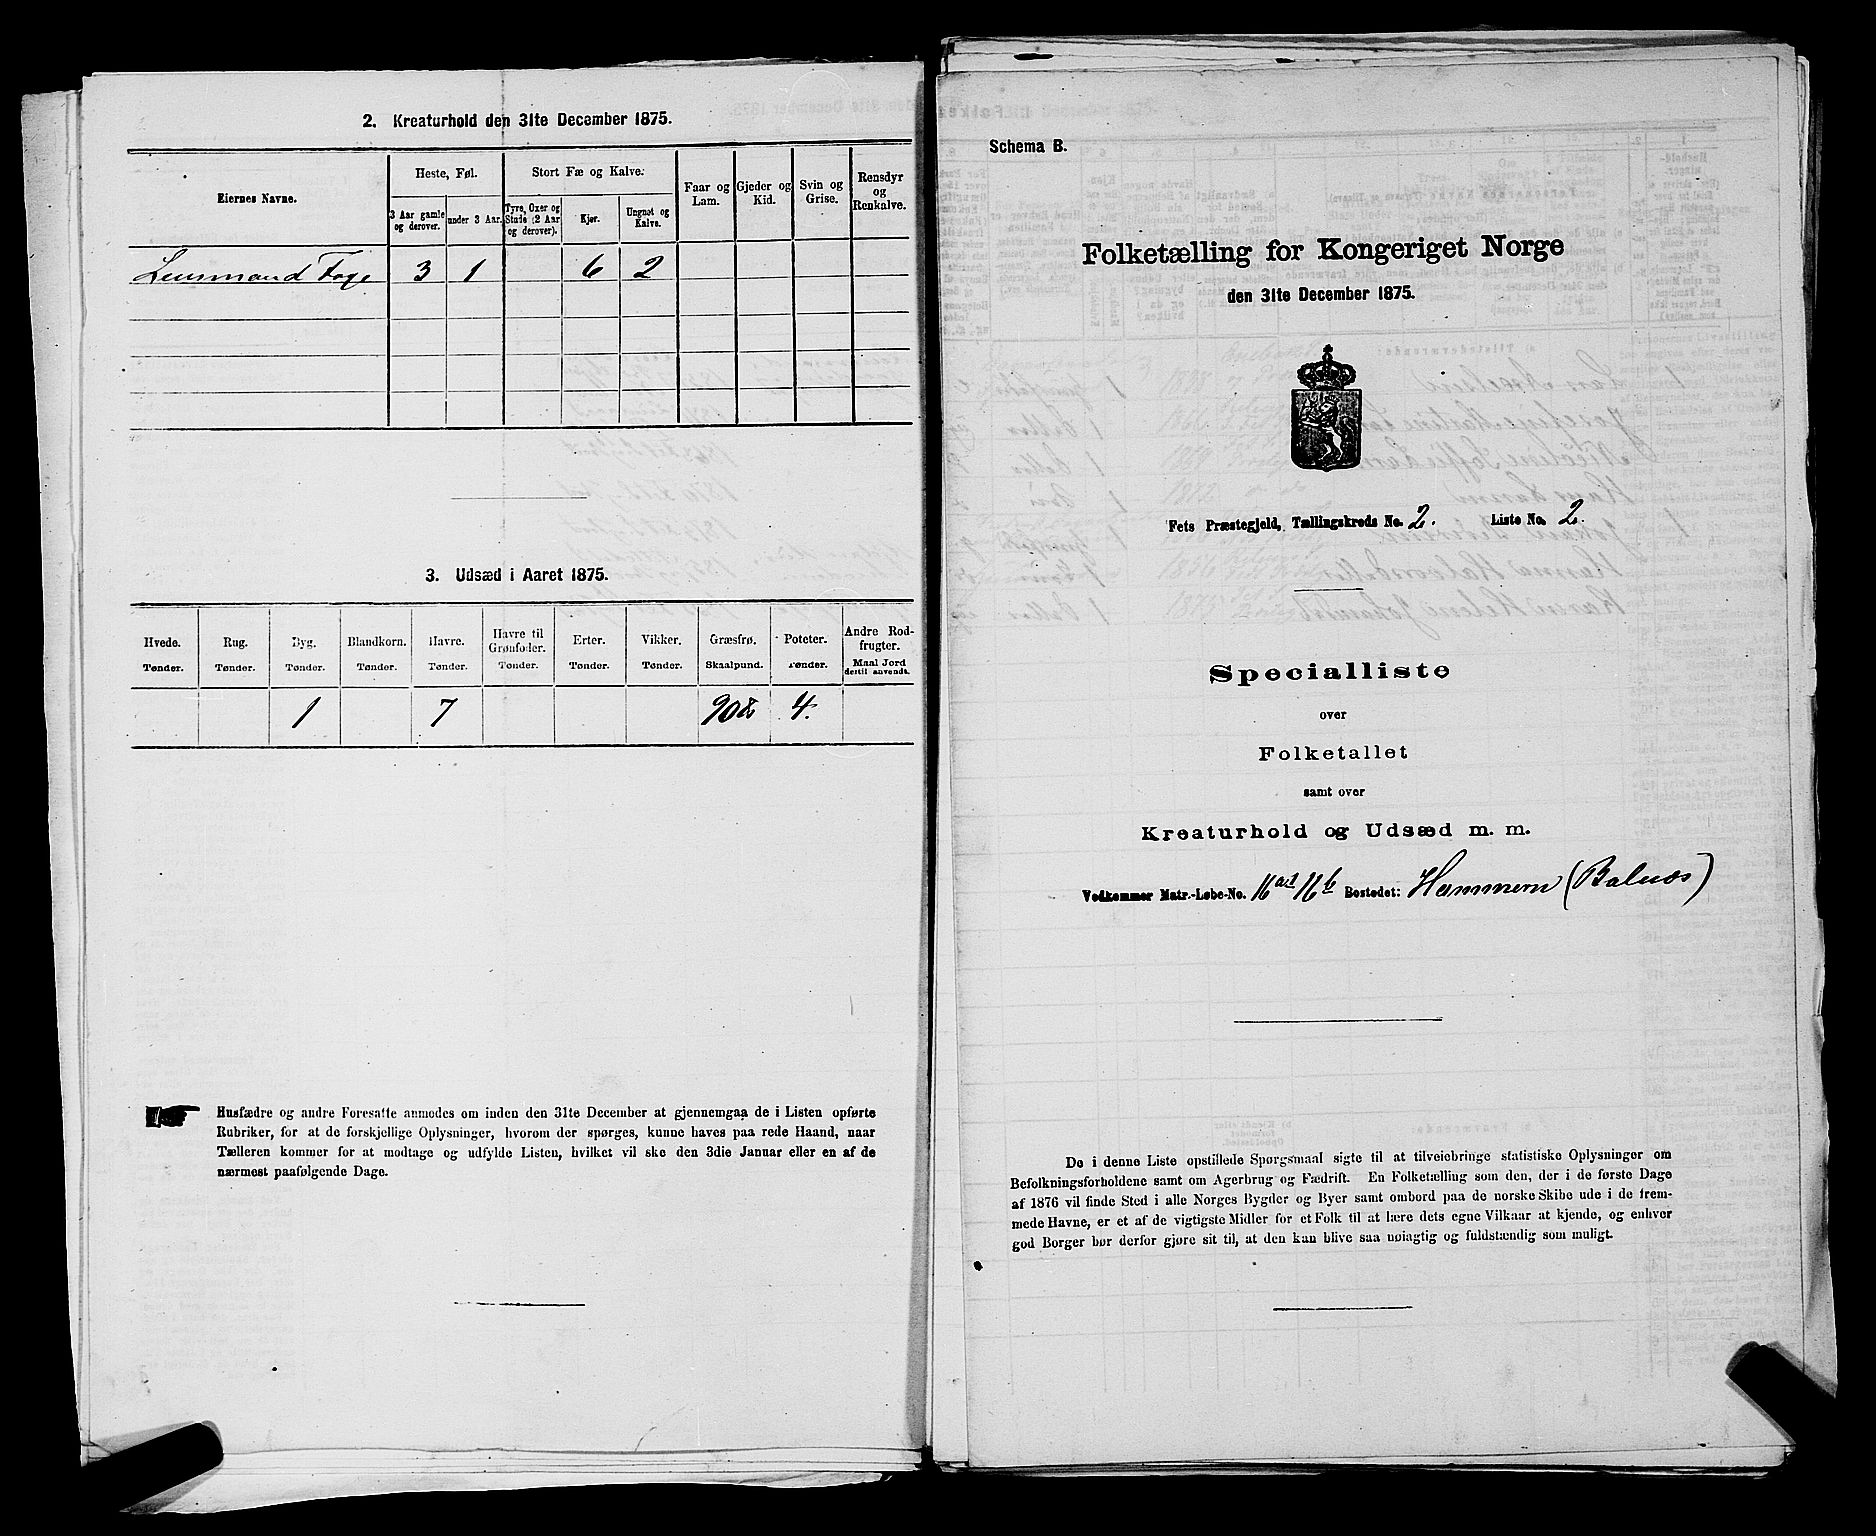 2. Kreaturhold den 31te December 1875.
Eiernes Navne.
Heste, Føl.
Stort Fæ og Kalve.
Faar og Lam.
Gjeder og Kid.
Svin og Grise.
Rensdyr og Renkalve.
3 Aar gamle og derover.
under 3 Aar.
Tyre, Oxer og Stude (2 Aar og derover).
Kjør.
Ungnøt og Kalve.
Lensmand 3 1 6 2
3. Udsæd i Aaret 1875.
Hvede. Rug. Byg. Blandkorn. Havre. Havre til Grønfoder. Erter. Vikker. Græsfrø. Poteter. Andre Rodfrugter.
Tønder. Tønder. Tønder. Tønder. Tønder. Tønder. Tønder. Tønder. Skaalpund. Tønder. Maal Jord dertil anvendt.
1 7 90 4.
Husfædre og andre Foresatte anmodes om inden den 31te December at gjennemgaa de i Listen opførte
Rubriker, for at de forskjellige Oplysninger, hvorom der spørges, kunne haves paa rede Haand, naar
Tælleren kommer for at modtage og udfylde Listen, hvilket vil ske den 3die Januar eller en af de
nærmest paafølgende Dage.
Schema B.
Folketælling for Kongeriget Norge
den 31te December 1875.
Fets Præstegjeld, Tællingskreds No. 2. Liste No. 2.
Specialliste
over
Folketallet
samt over
Kreaturhold og Udsæd m. m.
Vedkommer Matr.-Løbe-No. Bostedet: Hammern (Balnæs)
De i denne Liste opstillede Spørgsmaal sigte til at tilveiebringe statistiske Oplysninger om
Befolkningsforholdene samt om Agerbrug og Fædrift. En Folketælling som den, der i de første Dage
af 1876 vil finde Sted i alle Norges Bygder og Byer samt ombord paa de norske Skibe ude i de frem-
mede Havne, er et af de vigtigste Midler for et Folk til at lære dets egne Vilkaar at kjende, og enhver
god Borger bør derfor gjøre sit til, at den kan blive saa nøiagtig og fuldstændig som muligt.